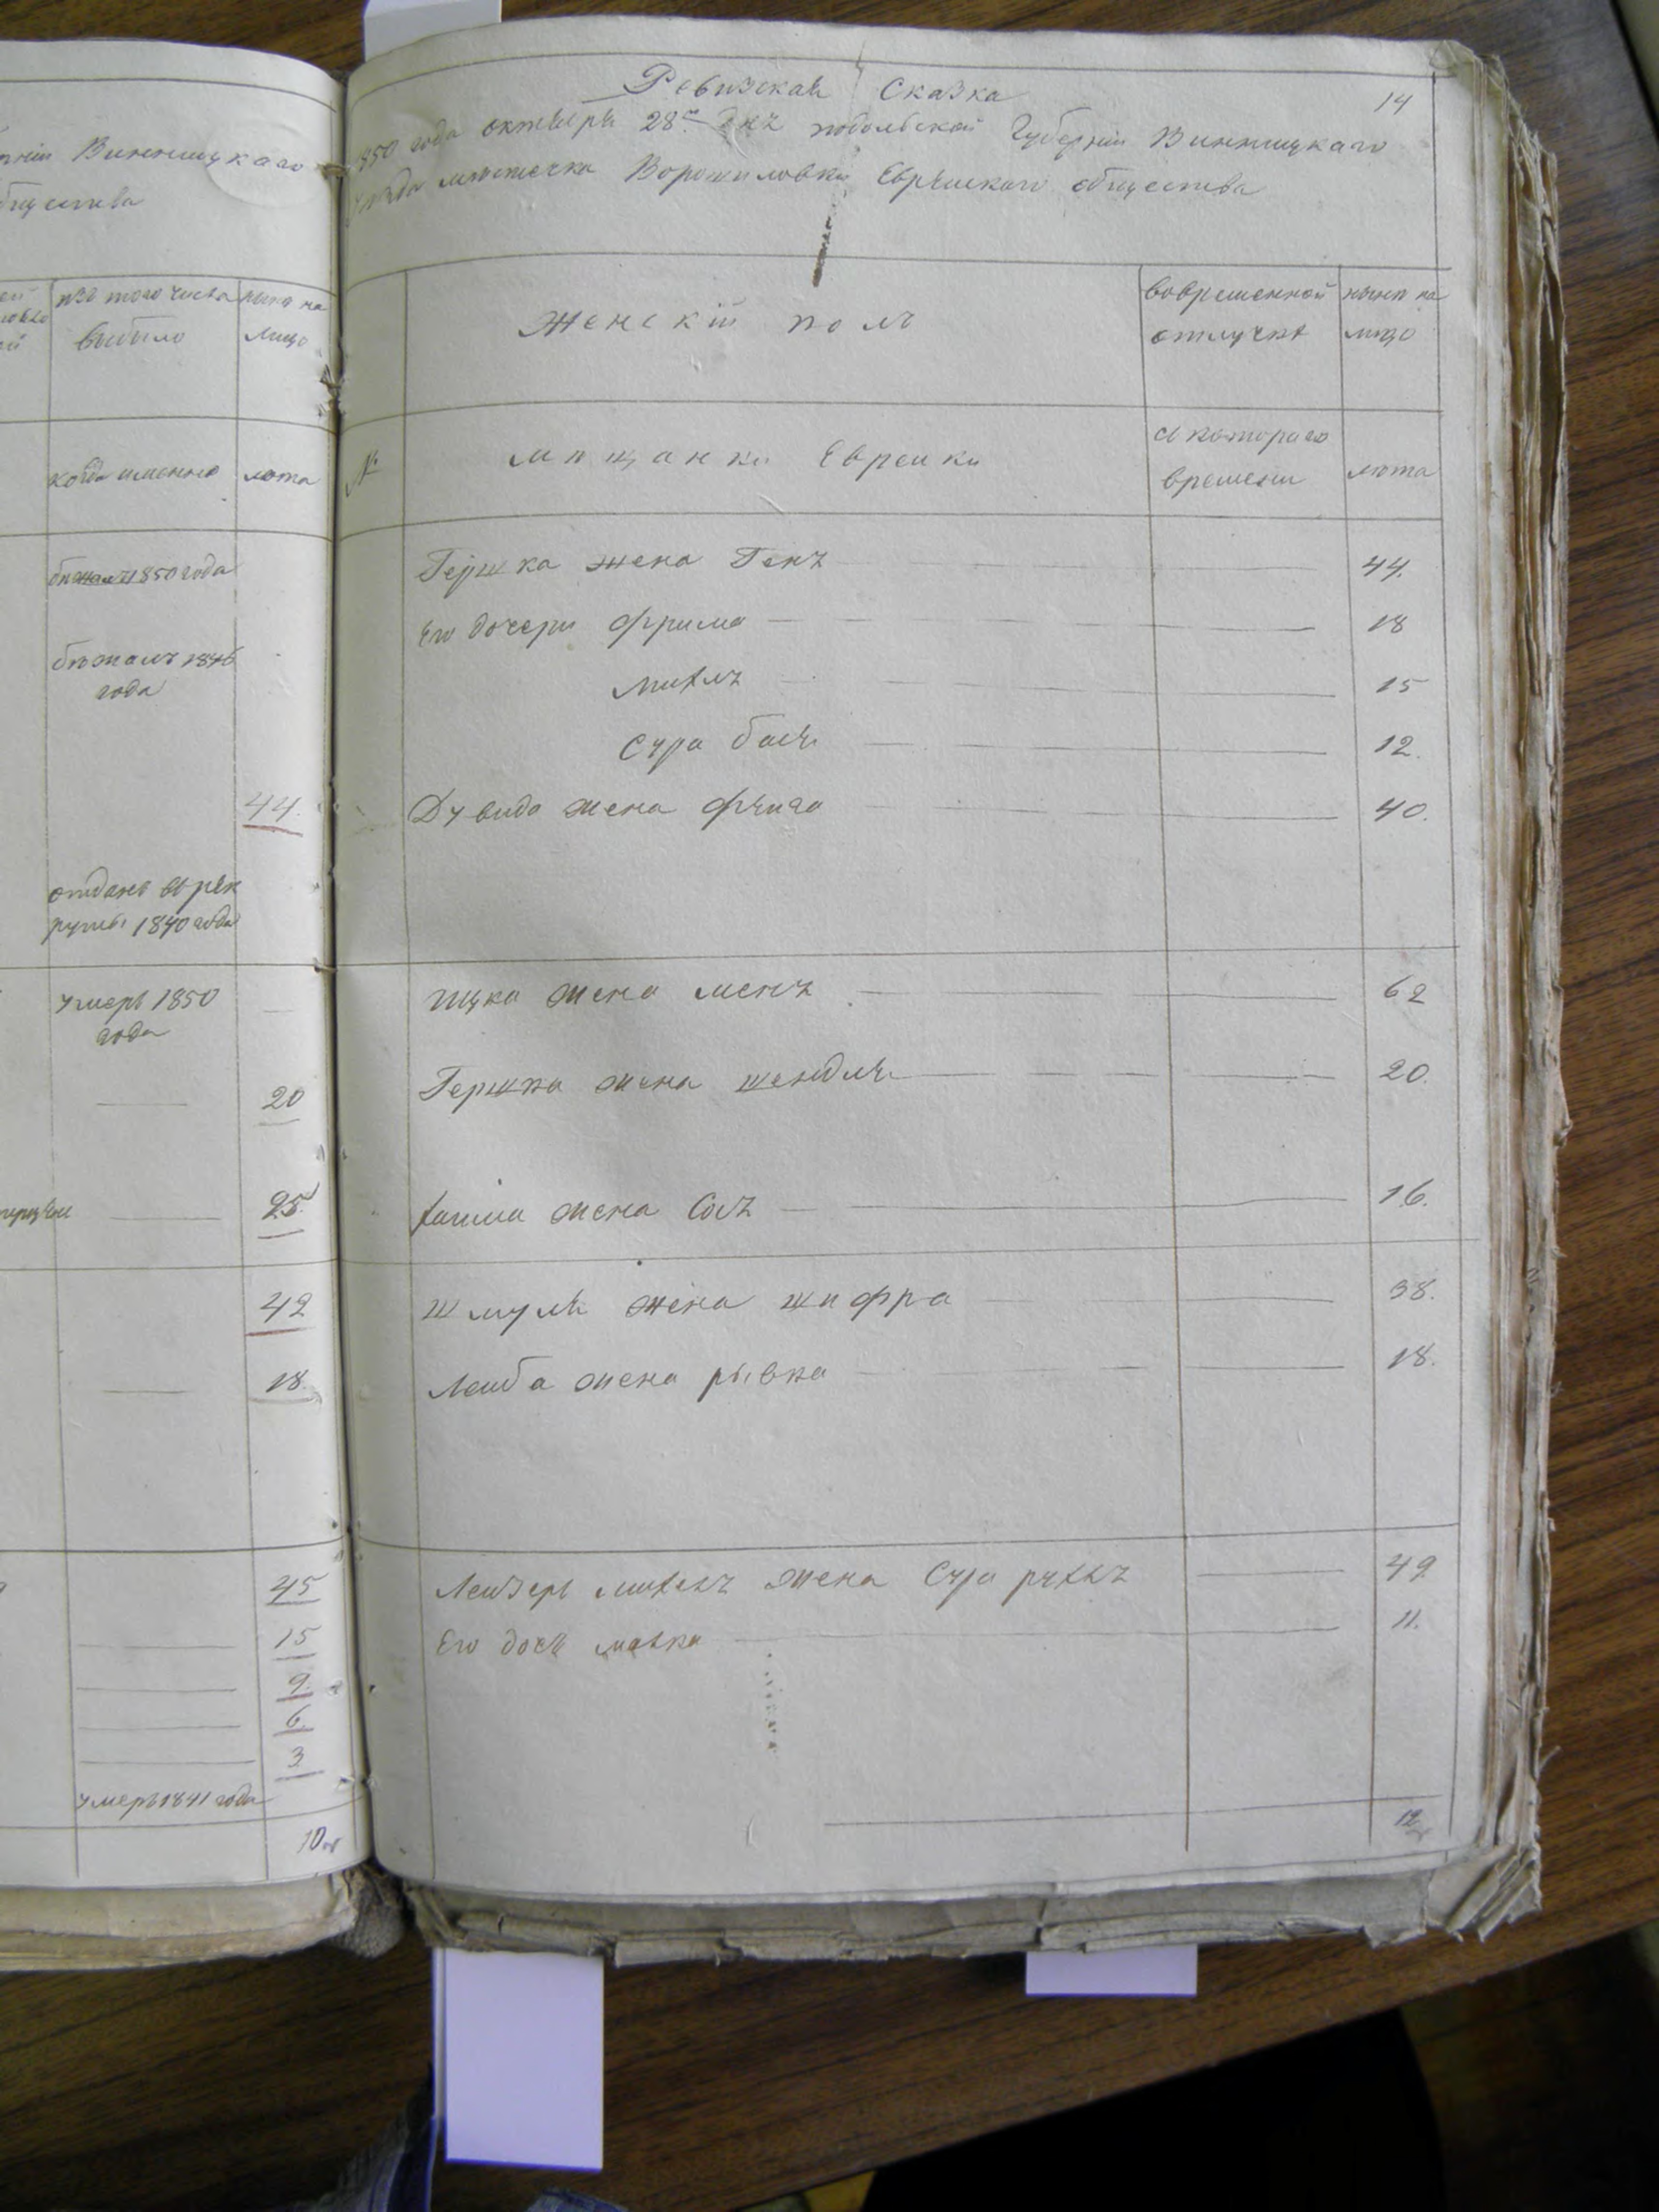 Винницкаго
общества
изъ того числа
выбыло
ныне на
лицо
когда именно
лета
бежалъ 1850 года
бежалъ 1846
года
44.
отданъ въ рек
руты 1840 года
умеръ 1850
года
20
25
42
18.
45
15
9.
6.
3.
умеръ 1841 года
10
Ревизская Сказка
14
1850 года октября 28го дня подольской Губернiи Винницкаго
уезда местечка Ворошиловки Еврейскаго общества
Женскiй полъ
вовременной
отлучке
ныне на
лицо
№
мещанки Еврейки
съ котораго
времени
лета
Гершка жена Генъ 44.
Его дочери Фрима 18
михлъ 15
Сура бася 12.
Дувида жена Фейга 40.
ицка жена менъ 62
Гершка жена шендля 20.
хаима жена Сосъ 16.
шмуля жена шифра 38.
Лейба жена рывка 18.
Лейзеръ михелъ жена Сура рухлъ 49
Его дочь малка 11.
12